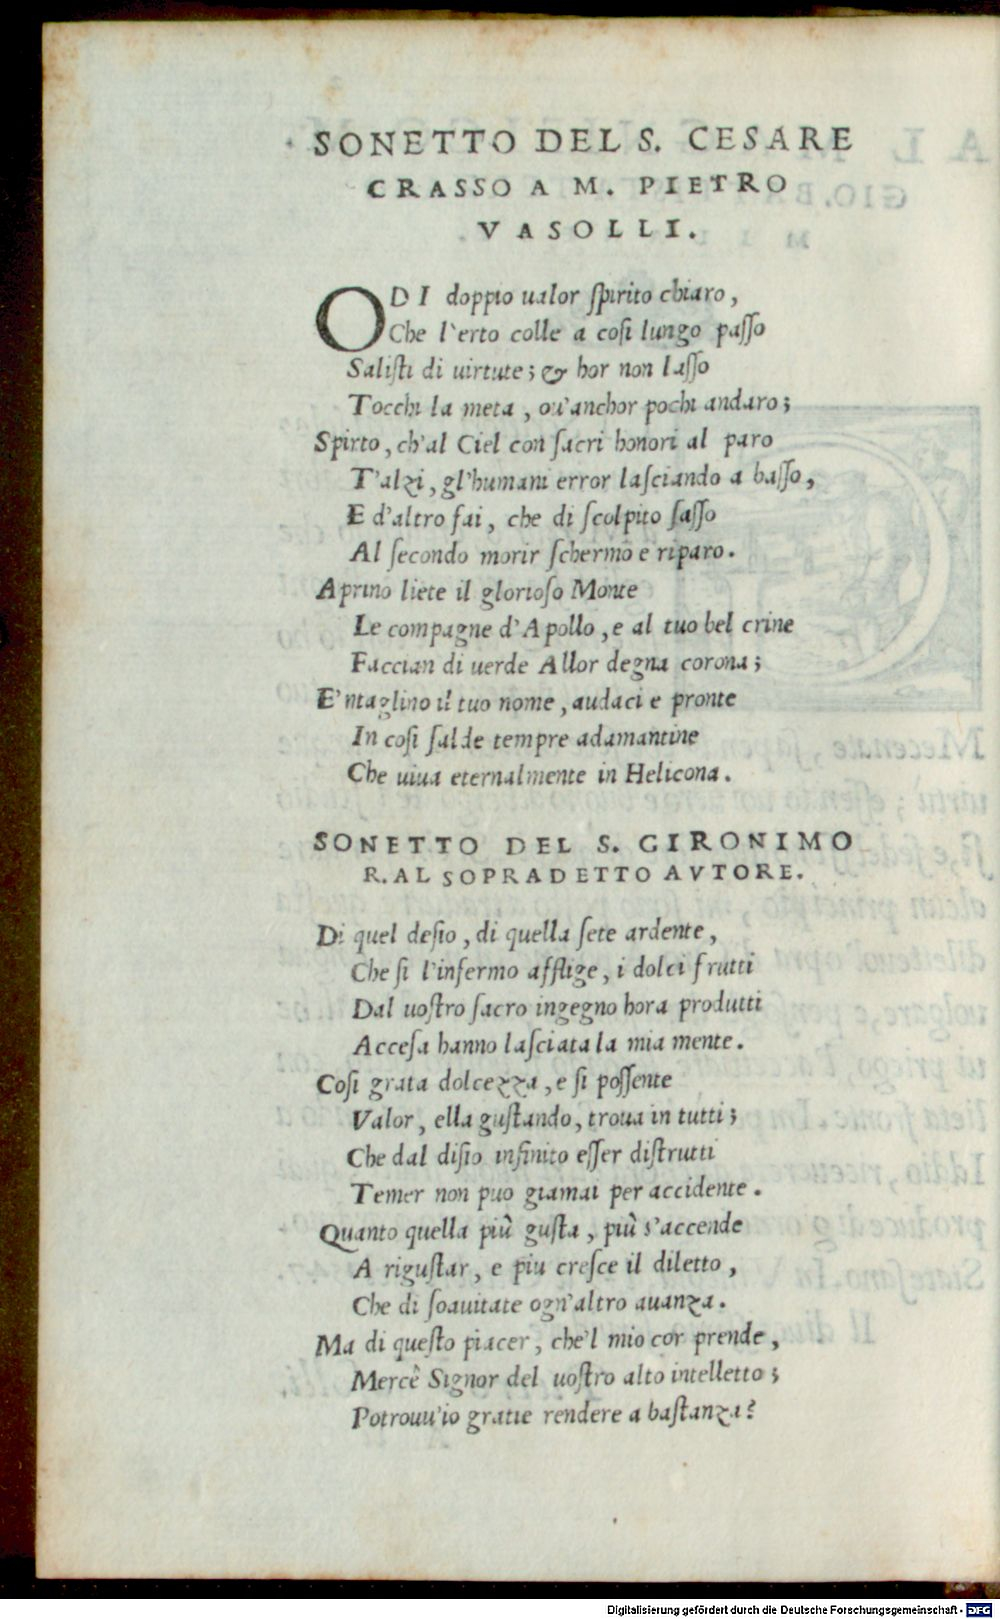 SONETTO DEL S. CESARE
CRASSO A M. PIETRO
VASOLLI.
O DI doppio ualor spirito chiaro,
Che l'erto colle a cosi lungo passo
Salisti di uirtute; & hor non lasso
Tocchi la meta, ou'anchor pochi andaro;
Spirto, ch'al Ciel con sacri honori al paro
T'alzi, gl'humani error lasciando a basso,
E d'altro fai, che di scolpito sasso
Al secondo morir schermo e riparo.
Aprino liete il glorioso Monte
Le compagne d'Apollo, e al tuo bel crine
Faccian di uerde Allor degna corona;
E'ntaglino il tuo nome, audaci e pronte
In cosi salde tempre adamantine
Che uiua eternalmente in Helicona.
SONETTO DEL S. GIRONIMO
R. AL SOPRADETTO AVTORE.
Di quel desio, di quella sete ardente,
Che si l'infermo afflige, i dolci frutti
Dal uostro sacro ingegno hora produtti
Accesa hanno lasciata la mia mente.
Cosi grata dolcezza, e si possente
Valor, ella gustando, troua in tutti;
Che dal disio infinito esser distrutti
Temer non puo giamai per accidente.
Quanto quella più gusta, più s'accende
A rigustar, e piu cresce il diletto,
Che di soauitate ogn'altro auanza.
Ma di questo piacer, che'l mio cor prende,
Mercê Signor del uostro alto intelletto;
Potrouu'io gratie rendere a bastanza?
Digitalisierung gefördert durch die Deutsche Forschungsgemeinschaft - DFG